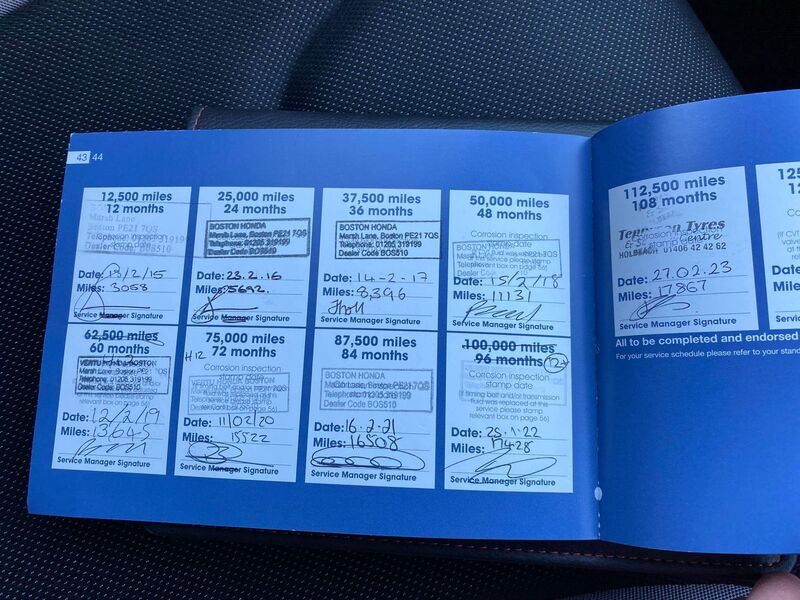 43 44
12,500 miles
12 months
Marsh Lane
Boston PE21 7QS
Telephone: 01205 319199
Dealer Code BOS510
Date: 13/2/15
Miles: 3058
Service Manager Signature
25,000 miles
24 months
BOSTON HONDA
Marsh Lane, Boston PE21 7QS
Telephone: 01205 319199
Dealer Code BOS510
Date: 23.2.16
Miles: 5692.
Service Manager Signature
37,500 miles
36 months
BOSTON HONDA
Marsh Lane, Boston PE21 7QS
Telephone: 01205 319199
Dealer Code BOS510
Date: 14-2-17
Miles: 8,396
Service Manager Signature
50,000 miles
48 months
Corrosion inspection
stamp date
this service please stamp
relevant box on page 56)
Date: 15/2/18
Miles: 11131
Service Manager Signature
62,500 miles
60 months
VERTU HONDA BOSTON
Marsh Lane, Boston PE21 7QS
Telephone: 01205 319199
Dealer Code BOS510
Date: 12/2/19
Miles: 13645
Service Manager Signature
75,000 miles
72 months
H12
Corrosion inspection
VERTU HONDA BOSTON
Date: 11/02/20
Miles: 15522
Service Manager Signature
87,500 miles
84 months
BOSTON HONDA
Marsh Lane, Boston PE21 7QS
Telephone: 01205 319199
Dealer Code BOS510
Date: 16.2.21
Miles: 16508
Service Manager Signature
100,000 miles
96 months
Corrosion inspection
stamp date
(If timing belt and/or transmission
fluid was replaced at this
service please stamp
relevant box on page 56)
Date: 25.1.22
Miles: 17428
Service Manager Signature
112,500 miles
108 months
Tyres
Centre
HOLBEACH 01406 42 42 62
Date: 27.02.23
Miles: 17867
Service Manager Signature
All to be completed and endorsed
For your service schedule please refer to your stand